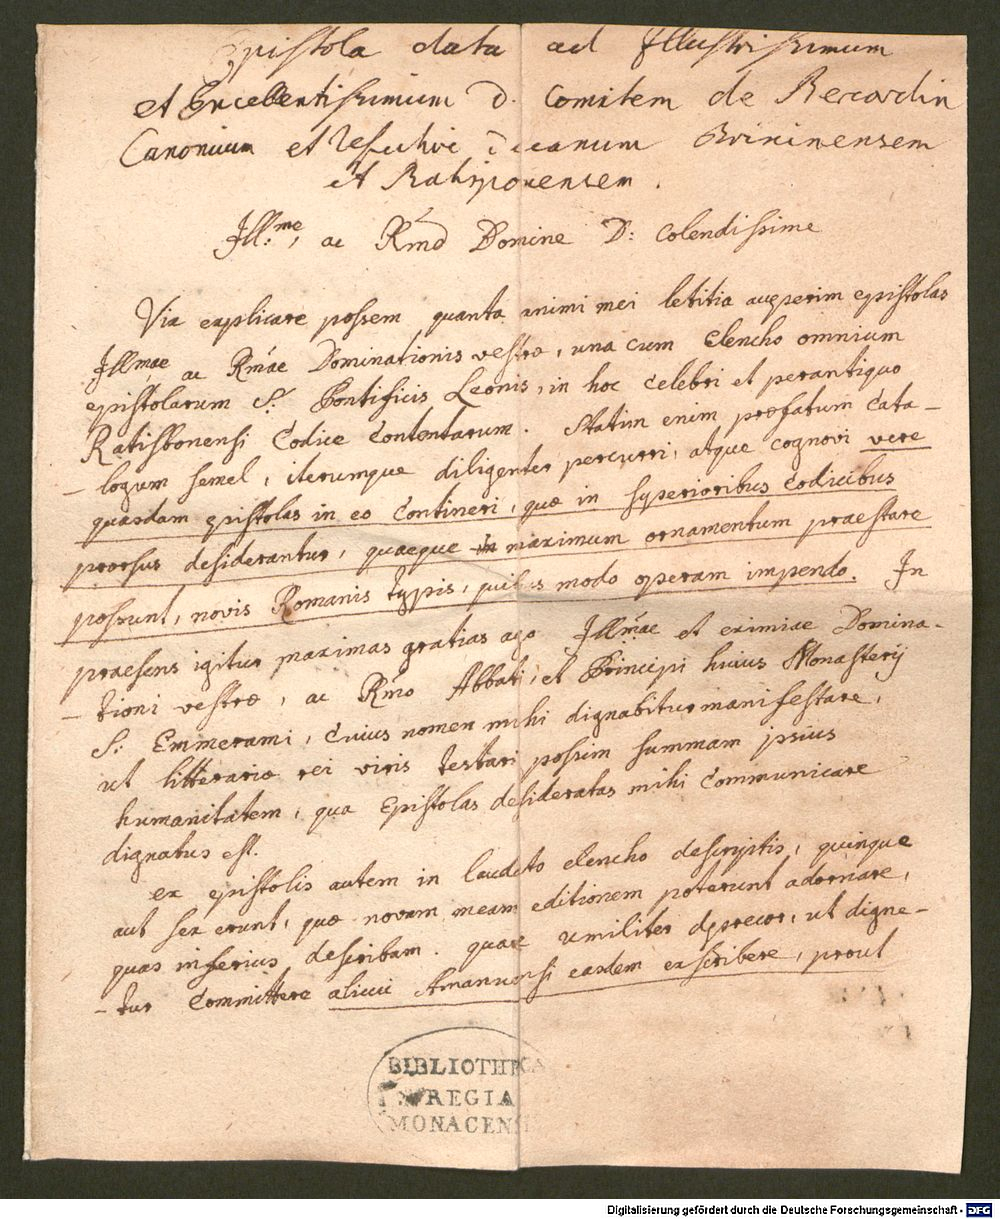 Epistola data ad Illustrissimum
et Excellentissimum D. Comitem de Recordin
Canonicum et Decanum Brixinensem
et Ratisponensem.
Ill.me, ac Rmo Domine D: Colendissime
Vix explicare possem quanta animi mei letitia acceperim epistolas
Illmae ac Rmae Dominationis vestrae, una cum Elencho omnium
epistolarum S. Pontificis Leonis, in hoc celebri et perantiquo
Ratisbonensi Codice Contentarum. Statim enim praefatum Cata-
-logum semel, iterumque diligenter percurri, atque cognovi vere
quasdam epistolas in eo Contineri, quae in superioribus Codicibus
prorsus desiderantur, quaeque maximum ornamentum praestare
possunt, novis Romanis typis, quibus modo operam impendo. In
praesens igitur maximas gratias ago Illmae et eximiae Domina-
-tioni vestrae, ac Rmo Abbati, et Principi huius Monasterij
S: Emmerami, Cuius nomen mihi dignabitur manifestare,
ut litterariae rei viris testari possim summam ipsius
humanitatem, qua Epistolas desideratas mihi Communicare
dignatus est.
ex epistolis autem in laudato elencho descriptis, quinque
aut sex erunt, quae novam meam editionem poterunt adornare,
quas inferius describam. quare umiliter deprecor, ut digne-
-tur Committere alicui Amanuensi easdem exscribere, prout
BIBLIOTHECA
REGIA
MONACENSIS
Digitalisierung gefördert durch die Deutsche Forschungsgemeinschaft - DFG